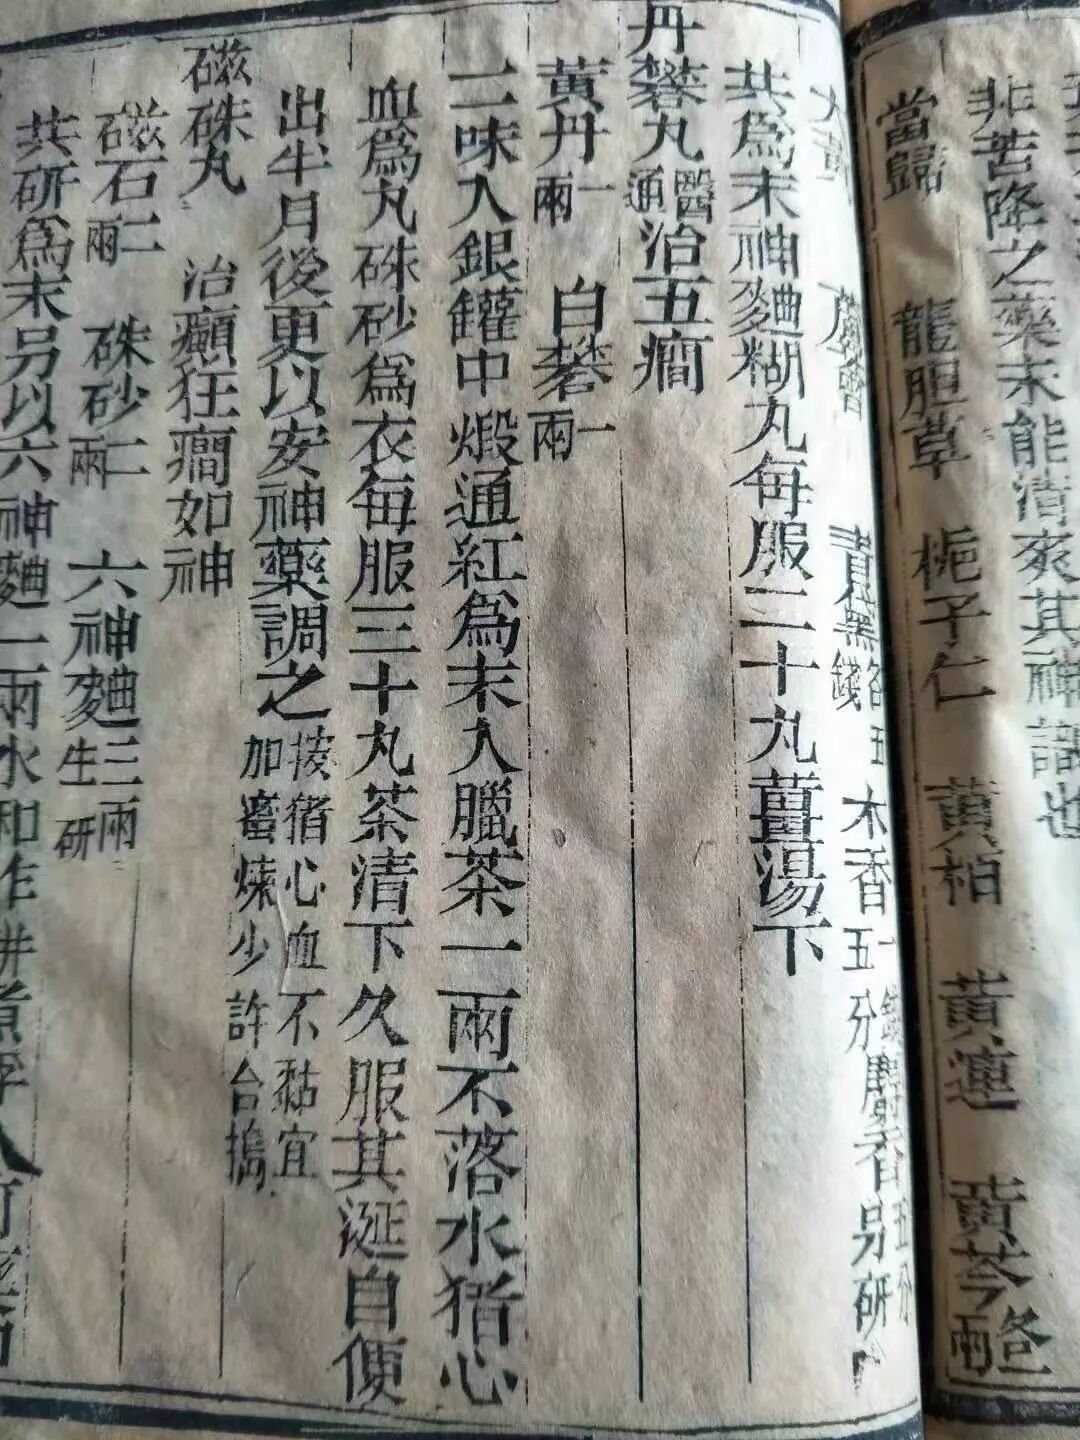 非苦降之藥末能清爽其神識也
當歸 龍胆草 梔子仁 黃柏 黃連 黃芩各一兩
大黃 蘆薈 青黛各五錢 木香一錢五分 麝香五分另研
共爲末神麯糊丸每服二十丸薑湯下
丹礬丸醫通治五癎
黃丹一兩 白礬一兩
二味入銀罐中煅通紅爲末入臘茶一兩不落水猪心
血爲丸硃砂爲衣每服三十丸茶清下久服其涎自便
出半月後更以安神藥調之按猪心血不黏宜加蜜煉少許台搗
磁硃丸 治癲狂癎如神
磁石二兩 硃砂二兩 六神麯三兩生研
共研爲末另以六神麯一兩水和作餅煮浮入